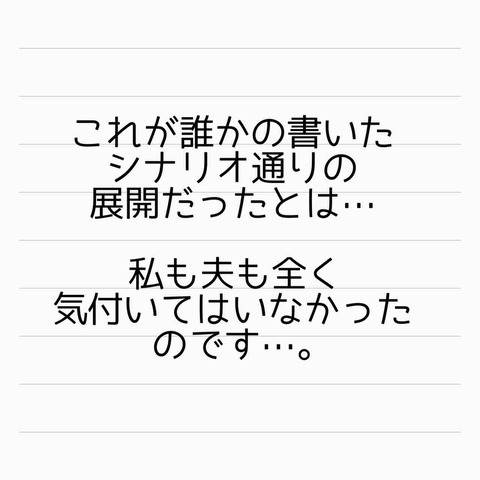 これが誰かの書いた
シナリオ通りの
展開だったとは…
私も夫も全く
気付いてはいなかった
のです…。